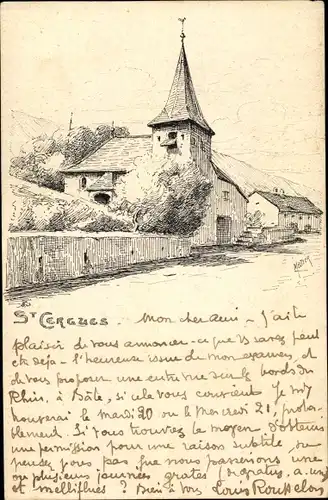 St CERGUES. Mon cher Ami - J'ai le
plaisir de vous annoncer - ce que vs savez peut
être déjà - l'heureuse issue de mon examen, et
de vous proposer une entrevue sur les bords du
Rhin, à Bâle, si cela vous convient. Je m'y
trouverai le mardi 20 ou le Mercredi 21, proba-
blement. Si vous trouvez le moyen d'obtenir
une permission pour une raison subtile, ne
pensez vous pas que nous passerions une
ou plusieurs journées grates
et melliflues? Bien à vs Louis Rousselot